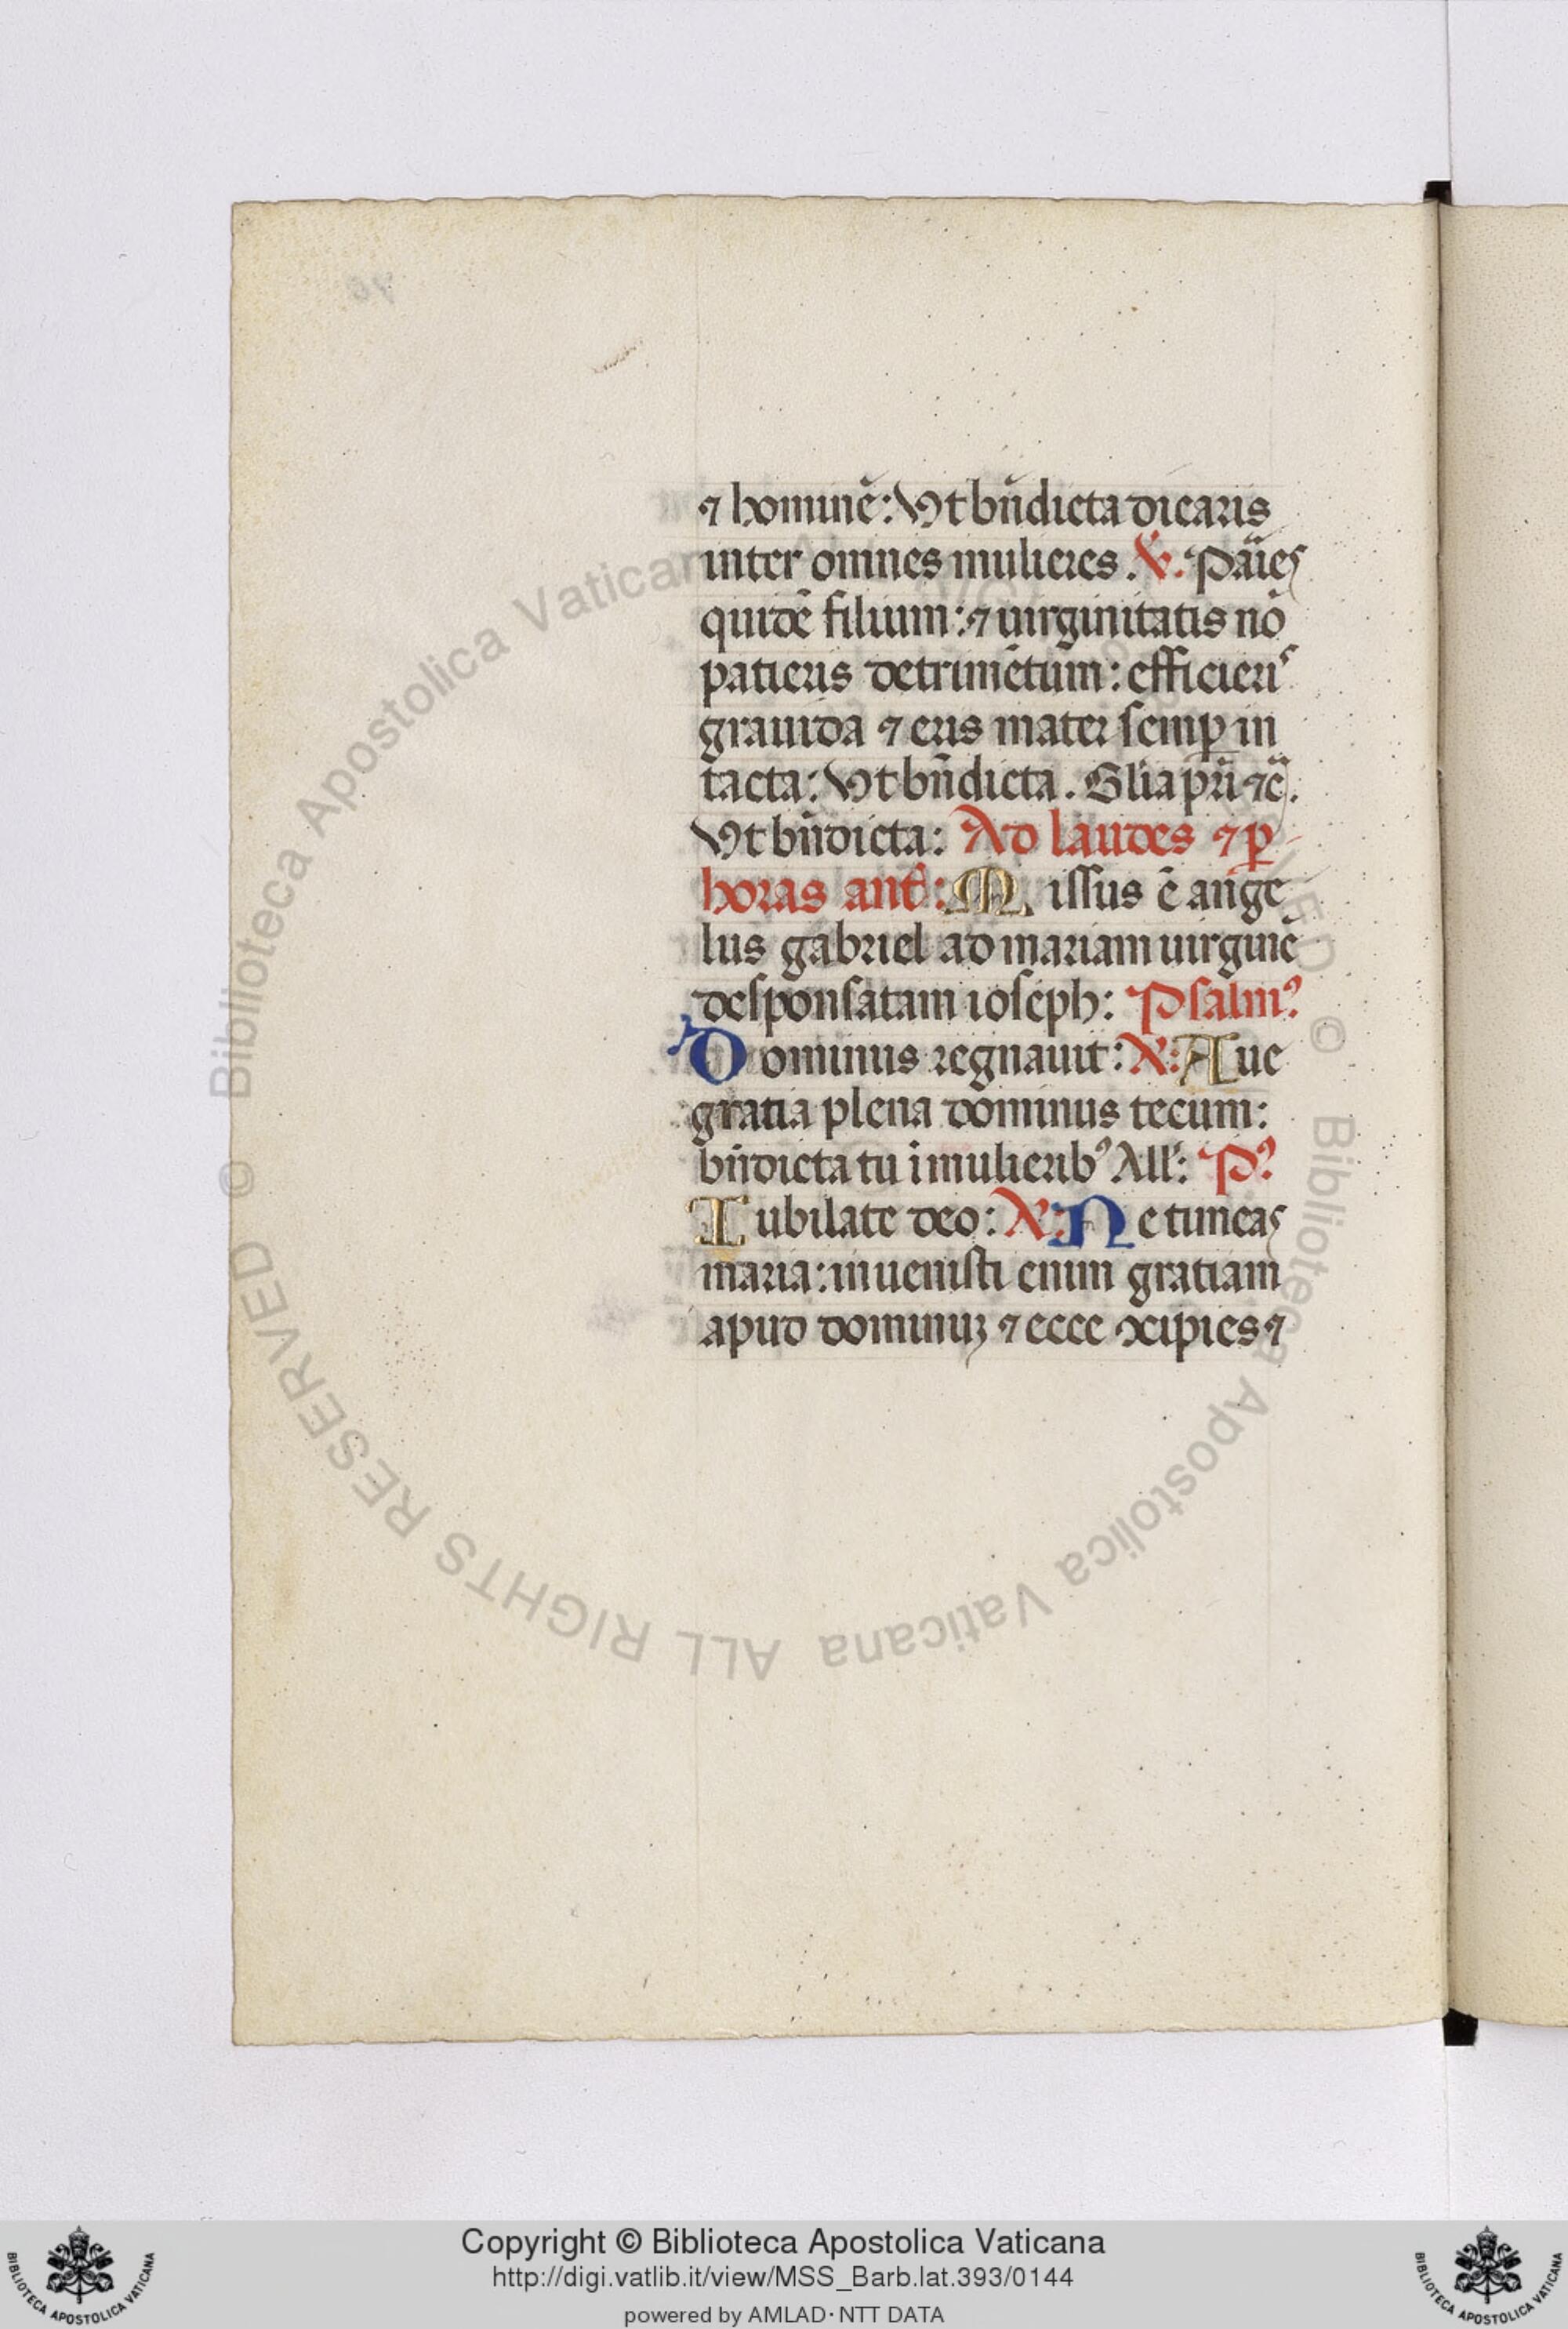 ⁊ hominē: Ut bn̄dicta dicaris
inter omnes mulieres. ℣. Paries
quidē filium: ⁊ uirginitatis nō
patieris detrimētum: efficieris
grauida ⁊ eris mater semꝑ in
tacta: Ut bn̄dicta. Gl̄ia pr̄i ⁊c̄.
Ut bn̄dicta: Ad laudes ⁊ ꝑ
horas ant̄: Missus ē ange
lus gabriel ad mariam uirginē
desponsatam ioseph: Psalmꝰ
Dominus regnauit: A᷒: Aue
gratia plena dominus tecum:
bn̄dicta tu ī mulieribꝰ All': Pꝰ
Iubilate deo: A᷒: Ne timeas
maria: inuenisti enim gratiam
apud dominuꝫ ⁊ ecce ꝯcipies ⁊
© Biblioteca Apostolica Vaticana ALL RIGHTS RESERVED © Biblioteca Apostolica Vaticana ALL RIGHTS RESERVED
Copyright © Biblioteca Apostolica Vaticana
http://digi.vatlib.it/view/MSS_Barb.lat.393/0144
powered by AMLAD·NTT DATA
BIBLIOTECA APOSTOLICA VATICANA
BIBLIOTECA APOSTOLICA VATICANA